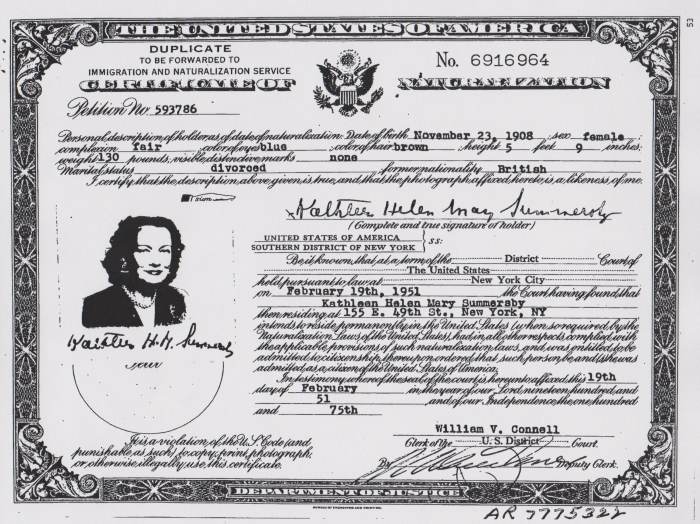 THE UNITED STATES OF AMERICA
DUPLICATE
TO BE FORWARDED TO
IMMIGRATION AND NATURALIZATION SERVICE
No. 6916964
CERTIFICATE OF NATURALIZATION
Petition No. 593786
Personal description of holder as of date of naturalization: Date of birth November 23, 1908 sex female
complexion fair color of eyes blue color of hair brown height 5 feet 9 inches;
weight 130 pounds, visible distinctive marks none
Marital status divorced former nationality British
I certify that the description above given is true, and that the photograph affixed hereto is a likeness of me.
Kathleen Helen May Summersby
(Complete and true signature of holder)
UNITED STATES OF AMERICA
SOUTHERN DISTRICT OF NEW YORK
ss:
Be it known, that at a term of the District Court of
The United States
held pursuant to law at New York City
on February 19th, 1951 the Court having found that
Kathleen Helen Mary Summersby
then residing at 155 E. 49th St., New York, NY
intends to reside permanently in the United States (when so required by the
Naturalization Laws of the United States), had in all other respects complied with
the applicable provisions of such naturalization laws, and was entitled to be
admitted to citizenship, thereupon ordered that such person be and (s)he was
admitted as a citizen of the United States of America.
In testimony whereof the seal of the court is hereunto affixed this 19th
day of February in the year of our Lord nineteen hundred and
51 and of our Independence the one hundred
and 75th
Kathleen H. M. Summersby
William V. Connell
Clerk of the U.S. District Court.
By Deputy Clerk.
It is a violation of the U.S. Code (and
punishable as such) to copy, print, photograph,
or otherwise illegally use this certificate.
DEPARTMENT OF JUSTICE
AR 7775322
53